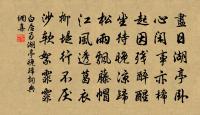 盡日湖亭卧
心閑事亦稀
起因殘醉醒
坐待晚涼歸
松雨飄藤帽
江風透葛衣
柳堤行不厭
沙軟絮霏霏
白居易湖亭晚歸詞典
網集